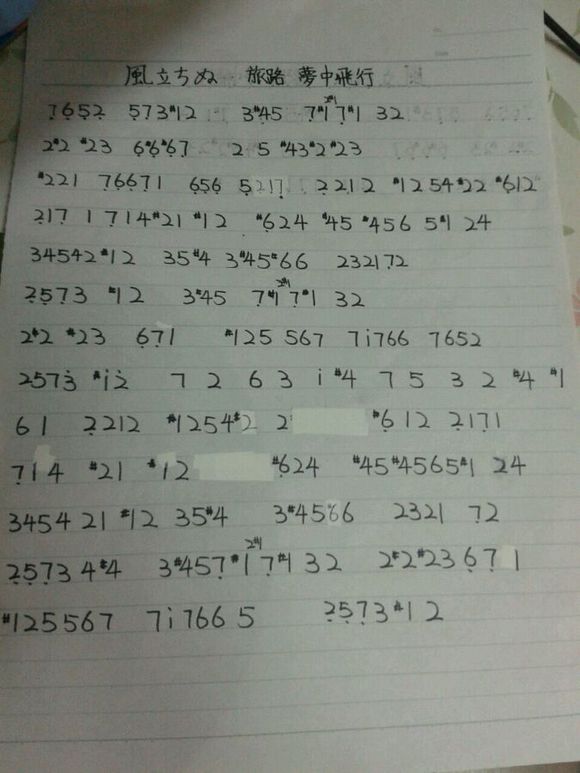 風立ちぬ 旅路 夢中飛行
7652 573#12 3#45 7#17#1 32
2#2 #23 6#6#67 25 #43#2#23
#221 76671 656 5217 2212 #1254#22 #612
217 1 714#21 #12 #624 #45 #456 5#1 24
34542#12 35#4 3#45#66 232172
2573 #12 3#45 7#17#1 32
2#2 #23 671 #125 567 7i766 7652
2573 #i2 7 2 6 3 i #4 7 5 3 2 #4 #1
61 2212 #1254#2 2 #612 2171
714 #21 #12 #624 #45#4565#1 24
3454 21 #12 35#4 3#4566 2321 72
2573 4#4 3#457#17#1 32 2#2#23 671
#125567 7i766 5 2573#12